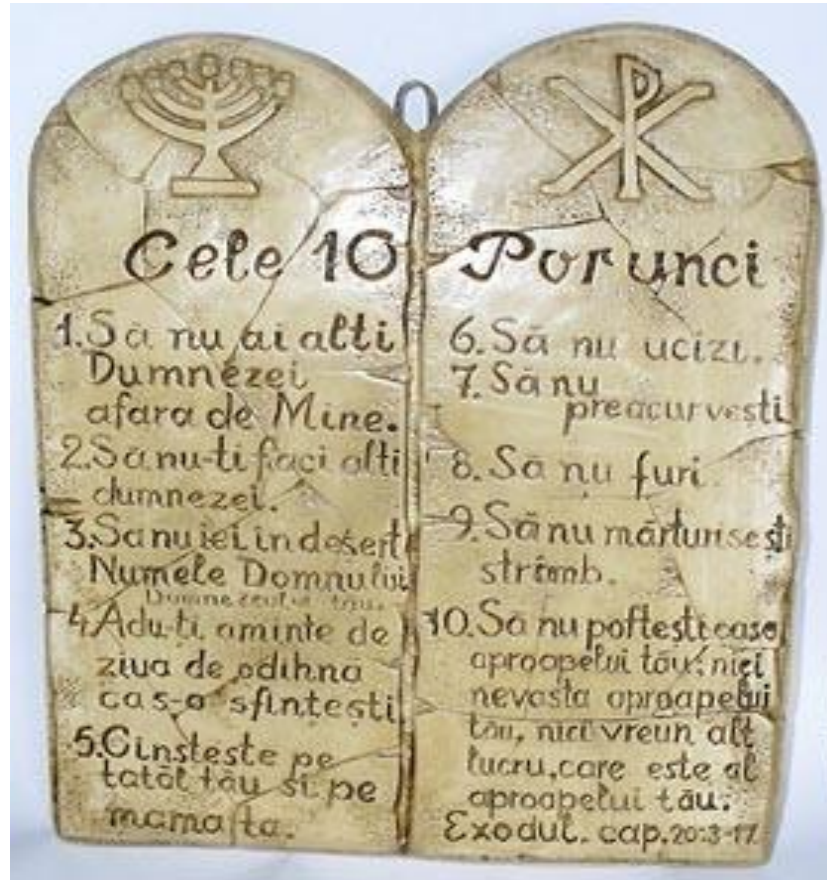 Cele 10 Porunci
1. Sa nu ai alti
Dumnezei
afara de Mine.
2. Sa nu-ti faci alti
dumnezei.
3. Sa nu iei in deșert
Numele Domnului
Dumnezeului tău.
4. Adu-ți aminte de
ziua de odihna
ca s-o sfintești
5. Cinsteste pe
tatăl tău si pe
mama ta.
6. Să nu ucizi.
7. Să nu
preacurvești
8. Să nu furi.
9. Să nu mărturisești
strîmb.
10. Să nu poftești casa
aproapelui tău: nici
nevasta aproapelui
tău, nici vreun alt
lucru, care este al
aproapelui tău.
Exodul. cap. 20:3-17